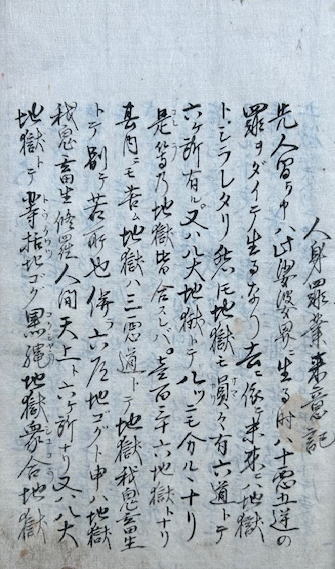 人身羅業来意記
先人留ト申ハ此娑婆界ニ生る時ハ十悪五逆の
罪ヲダイテ生るなり 去ニ依テ未来ニハ地獄
トシラレタリ 然ルニ地獄モ員々有 六道トテ
六ヶ所有ル 又ハ八大地獄トテ八ツニモ分ル
是等乃地獄皆合スレバ 壱百三十六地獄トナリ
其内ニモ苦ム地獄ハ三悪道トテ地獄餓鬼畜生
トテ別テ苦所也 偖ヲ六道地ゴグト申ハ地獄
餓鬼畜生修羅人間天上ト六ヶ所ナリ 又ハ八大
地獄トテ等活地ゴク黒縄地獄衆合地獄